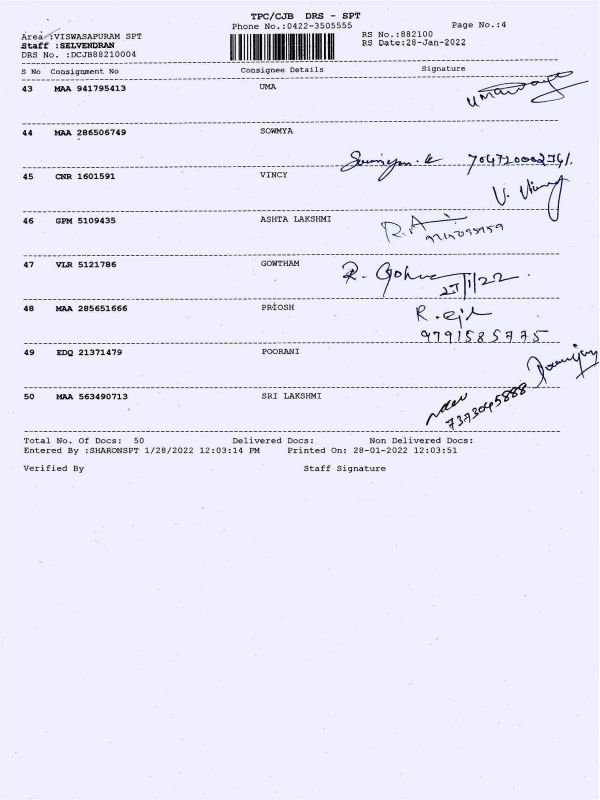 TPC/CJB DRS - SPT
Phone No.:0422-3505555 Page No.:4
Area :VISWASAPURAM SPT RS No.:882100
Staff :SELVENDRAN RS Date:28-Jan-2022
DRS No. :DCJB88210004
S No Consignment No Consignee Details Signature
43 MAA 941795413 UMA
44 MAA 286506749 SOWMYA
45 CNR 1601591 VINCY
V.
46 GPM 5109435 ASHTA LAKSHMI
47 VLR 5121786 GOWTHAM
R.
48 MAA 285651666 PRIOSH
R.
9791585775
49 EDQ 21371479 POORANI
50 MAA 563490713 SRI LAKSHMI
7373045888
Total No. Of Docs: 50 Delivered Docs: Non Delivered Docs:
Entered By :SHARONSPT 1/28/2022 12:03:14 PM Printed On: 28-01-2022 12:03:51
Verified By Staff Signature